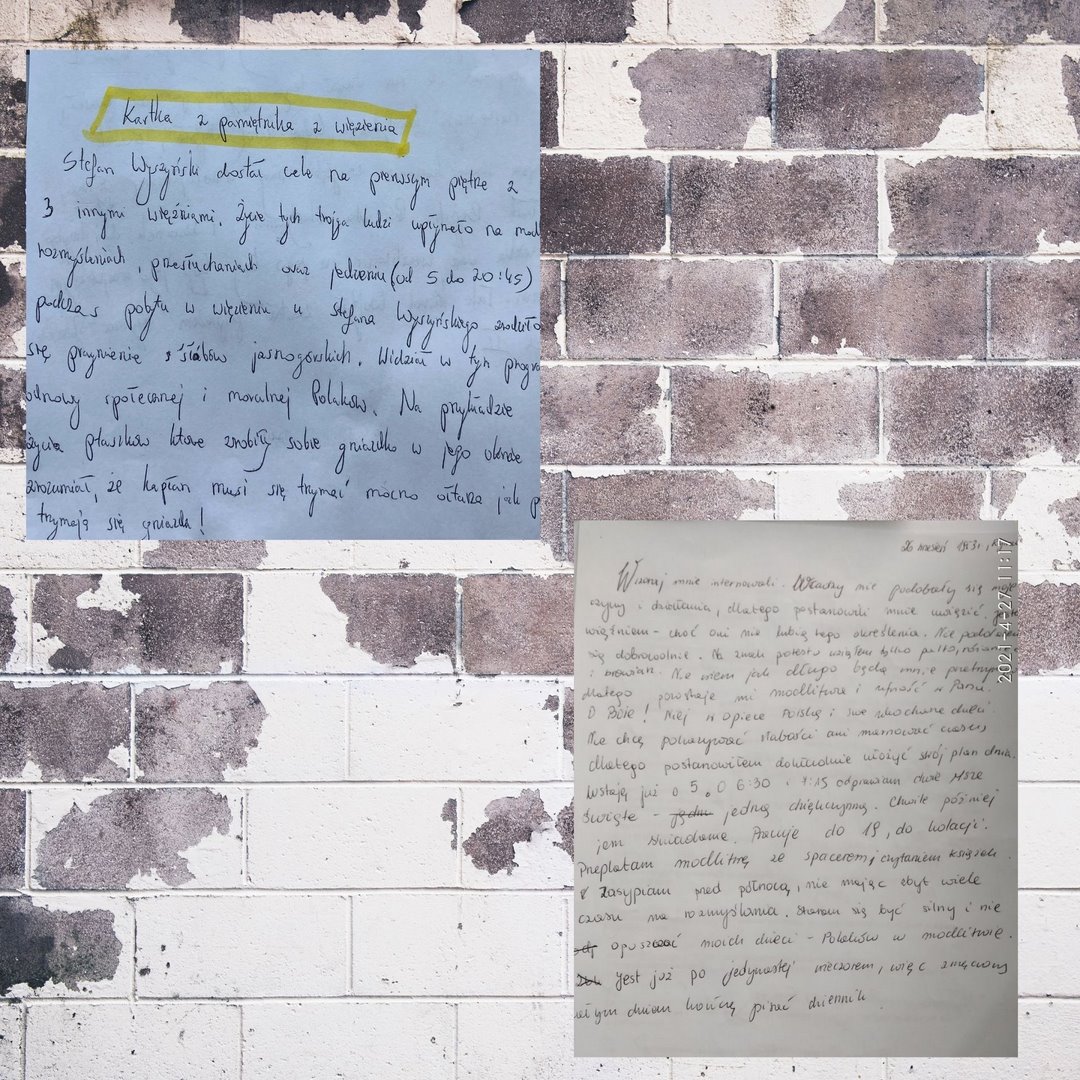 Kartka z pamiętnika z więzienia
Stefan Wyszyński dostał cele na pierwszym piętrze z
3 innymi więźniami. Życie tych trojga ludzi upłynęło na mod
rozmyślaniach, przesłuchaniach oraz jedzeniu (od 5 do 20:45)
podczas pobytu w więzieniu u Stefana Wyszyńskiego zrodziło
się pragnienie ślubów jasnogórskich. Widział w tym progra
odnowy społecznej i moralnej Polaków. Na przykładzie
życia ptaszków które zrobiły sobie gniazdko w jego oknie
zrozumiał, że kapłan musi się trzymać mocno ołtarza jak p
trzymają się gniazda!
26 wrzesień 1953r,
Wczoraj mnie internowali. Władzy nie podobały się moje
czyny i działania, dlatego postanowili mnie uwięzić. Jeste
więźniem - choć oni nie lubią tego określenia. Nie poddałem
się dobrowolnie. Na znak protestu wziąłem tylko palto, różan
i brewiarz. Nie wiem jak długo będą mnie przetrzym
dlatego pozostaje mi modlitwa i ufność w Panu.
O Boże! Miej w opiece Polskę i swe ukochane dzieci.
Nie chcę pokazywać słabości ani marnować czasu,
dlatego postanowiłem dokładnie ułożyć swój plan dnia.
Wstaję już o 5. O 6:30 i 7:15 odprawiam dwie Msze
Święte - jedną dziękczynną. Chwilę później
jem śniadanie. Pracuję do 19, do kolacji.
Przeplatam modlitwę ze spacerem i czytaniem książek.
Zasypiam przed północą, nie mając zbyt wiele
czasu na rozmyślania. Staram się być silny i nie
opuszczać moich dzieci - Polaków w modlitwie.
Jest już po jedynastej wieczorem, więc zmęczony
całym dniem kończę pisać dziennik.
2021-4-27 11:17